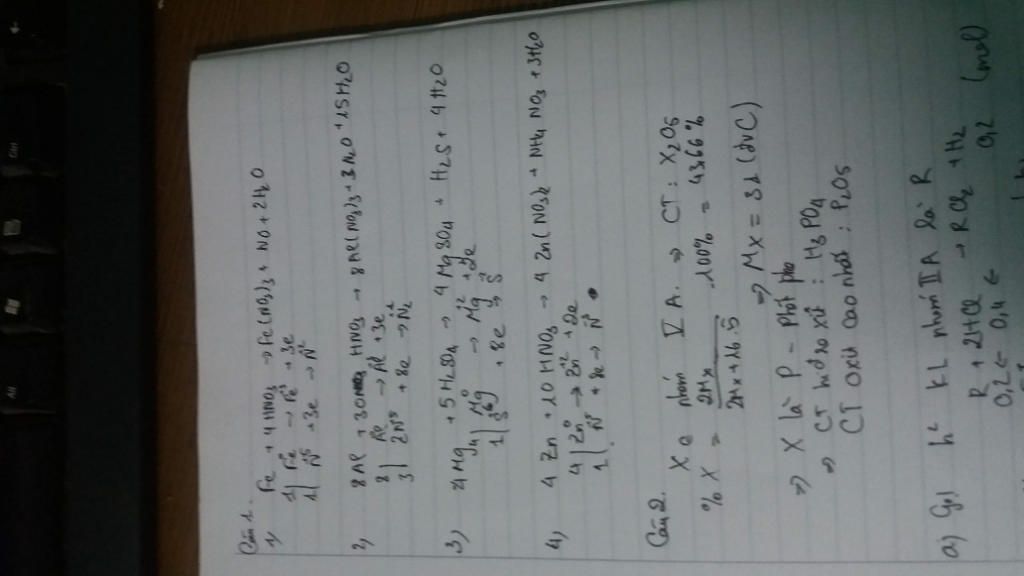 Câu 1.
1) Fe + 4HNO3 → Fe(NO3)3 + NO + 2H2O
1| Fe0 → Fe+3 + 3e
1| N+5 + 3e → N+2
2) 8Al + 30HNO3 → 8Al(NO3)3 + 3N2O + 15H2O
8| Al → Al + 3e
3| 2N+5 + 8e → N2
3) 4Mg + 5H2SO4 → 4MgSO4 + H2S + 4H2O
4| Mg0 → Mg+2 + 2e
1| S+6 + 8e → S-2
4) 4Zn + 10HNO3 → 4Zn(NO3)2 + NH4NO3 + 3H2O
4| Zn0 → Zn+2 + 2e
1| N+5 + 8e → N-3
Câu 2.
X ∈ nhóm VA. ⇒ CT: X2O5
%X = 2Mx / 2Mx + 16.5 .100% = 43,66%
⇒ Mx = 31 (đvC)
⇒ X là P - Phốt pho
⇒ CT hiđroxit : H3PO4
CT oxit cao nhất : P2O5
a) Gọi h2 kl nhóm IIA là R
R + 2HCl → RCl2 + H2
0,2 ← 0,4 ← 0,2 (mol)